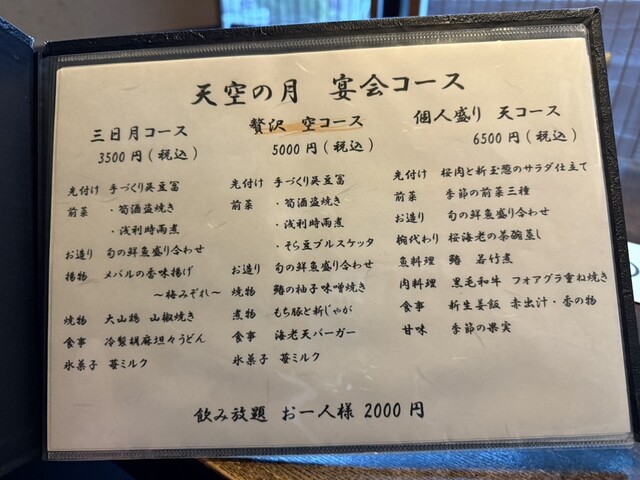 天空の月 宴会コース
三日月コース
3500円(税込)
先付け 手づくり呉豆冨
前菜 ・筍酒盗焼き
・浅利時雨煮
お造り 旬の鮮魚盛り合わせ
揚物 メバルの香味揚げ
〜梅みぞれ〜
焼物 大山鶏 山椒焼き
食事 冷製胡麻坦々うどん
氷菓子 苺ミルク
贅沢 空コース
5000円(税込)
先付け 手づくり呉豆冨
前菜 ・筍酒盗焼き
・浅利時雨煮
・そら豆ブルスケッタ
お造り 旬の鮮魚盛り合わせ
焼物 鰆の柚子味噌焼き
煮物 もち豚と新じゃが
食事 海老天バーガー
氷菓子 苺ミルク
個人盛り 天コース
6500円(税込)
先付け 桜肉と新玉葱のサラダ仕立て
前菜 季節の前菜三種
お造り 旬の鮮魚盛り合わせ
椀代わり 桜海老の茶碗蒸し
魚料理 鰆 若竹煮
肉料理 黒毛和牛 フォアグラ重ね焼き
食事 新生姜飯 赤出汁・香の物
甘味 季節の果実
飲み放題 お一人様 2000円